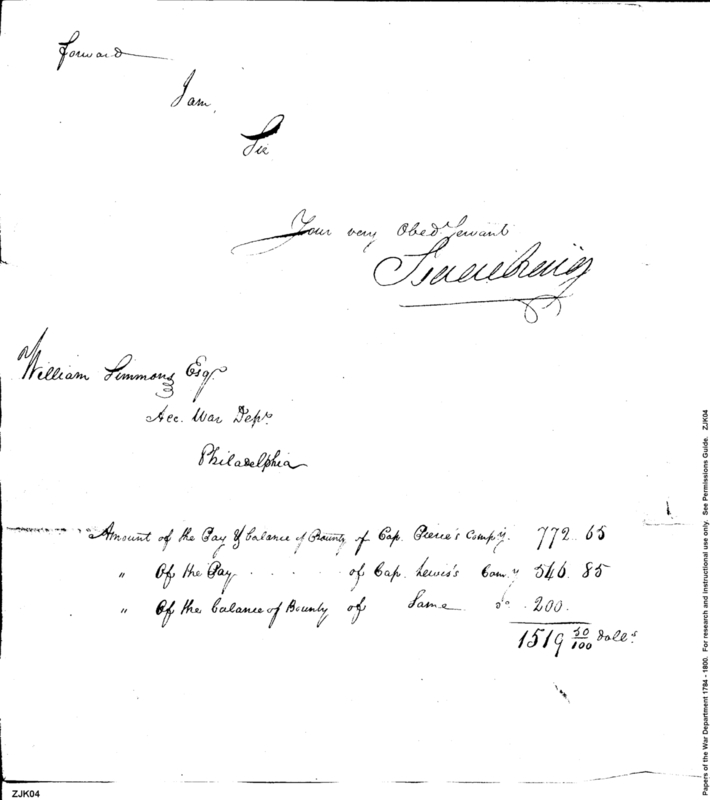 forward
I am,
Sir
Your very Obed. Servant
Isaac Craig
William Simmons Esqr.
Acc. War Depr.
Philadelphia
Amount of the Pay & balance of Bounty of Cap. Pierce's Compy. 772.. 65
" Of the Pay . . . . . of Cap. Lewis's Comy 546.. 85
" Of the balance of Bounty of Same do 200.
1519 50/100 dolls.
ZJK04
Papers of the War Department 1784 - 1800. For research and instructional use only. See Permissions Guide. ZJK04